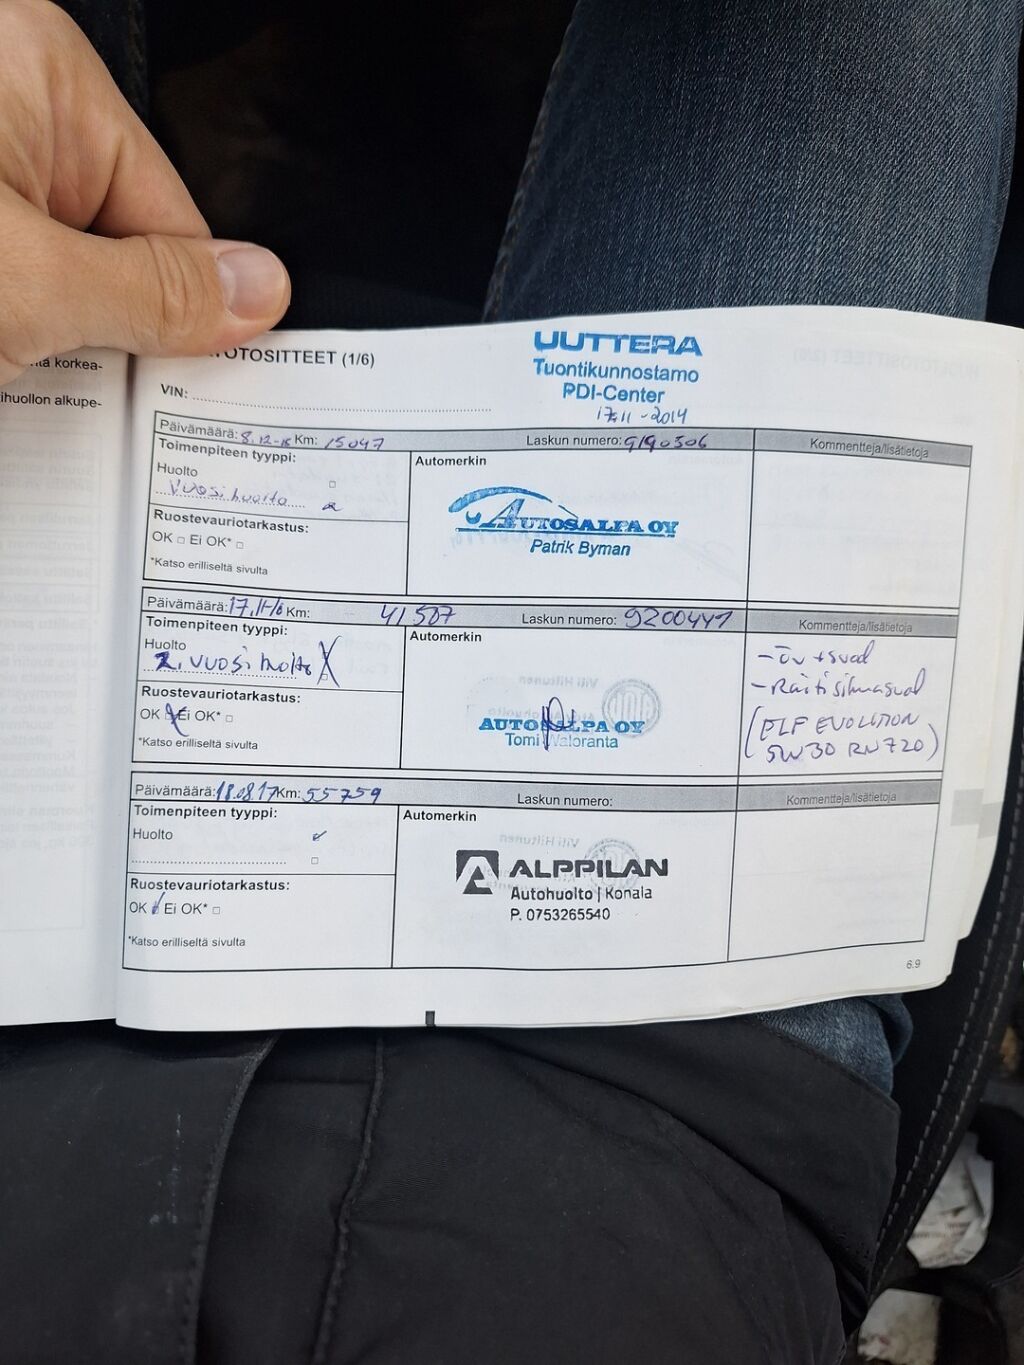 ntä korkea-
ihuollon alkupe-
OTOSITTEET (1/6)
UUTTERA
Tuontikunnostamo
PDI-Center
17.11-2014
VIN:
Päivämäärä: 8.12-15 Km: 15047 Laskun numero: 9190506 Kommentteja/lisätietoja
Toimenpiteen tyyppi:
Huolto
Vuosihuolto
Ruostevauriotarkastus:
OK Ei OK*
*Katso erilliseltä sivulta
Automerkin
AUTOSALPA OY
Patrik Byman
Päivämäärä: 17.11-16 Km: 41507 Laskun numero: 9200447 Kommentteja/lisätietoja
Toimenpiteen tyyppi:
Huolto
2. vuosihuolto X
Ruostevauriotarkastus:
OK X Ei OK*
*Katso erilliseltä sivulta
Automerkin
AUTOSALPA OY
Tomi Valoranta
- Raitisilmasuod
(ELF EVOLUTION
5W30 RN720)
Päivämäärä: 18.08.17 Km: 55759 Laskun numero: Kommentteja/lisätietoja
Toimenpiteen tyyppi:
Huolto
Ruostevauriotarkastus:
OK Ei OK*
*Katso erilliseltä sivulta
Automerkin
ALPPILAN
Autohuolto | Konala
P. 0753265540
6.9